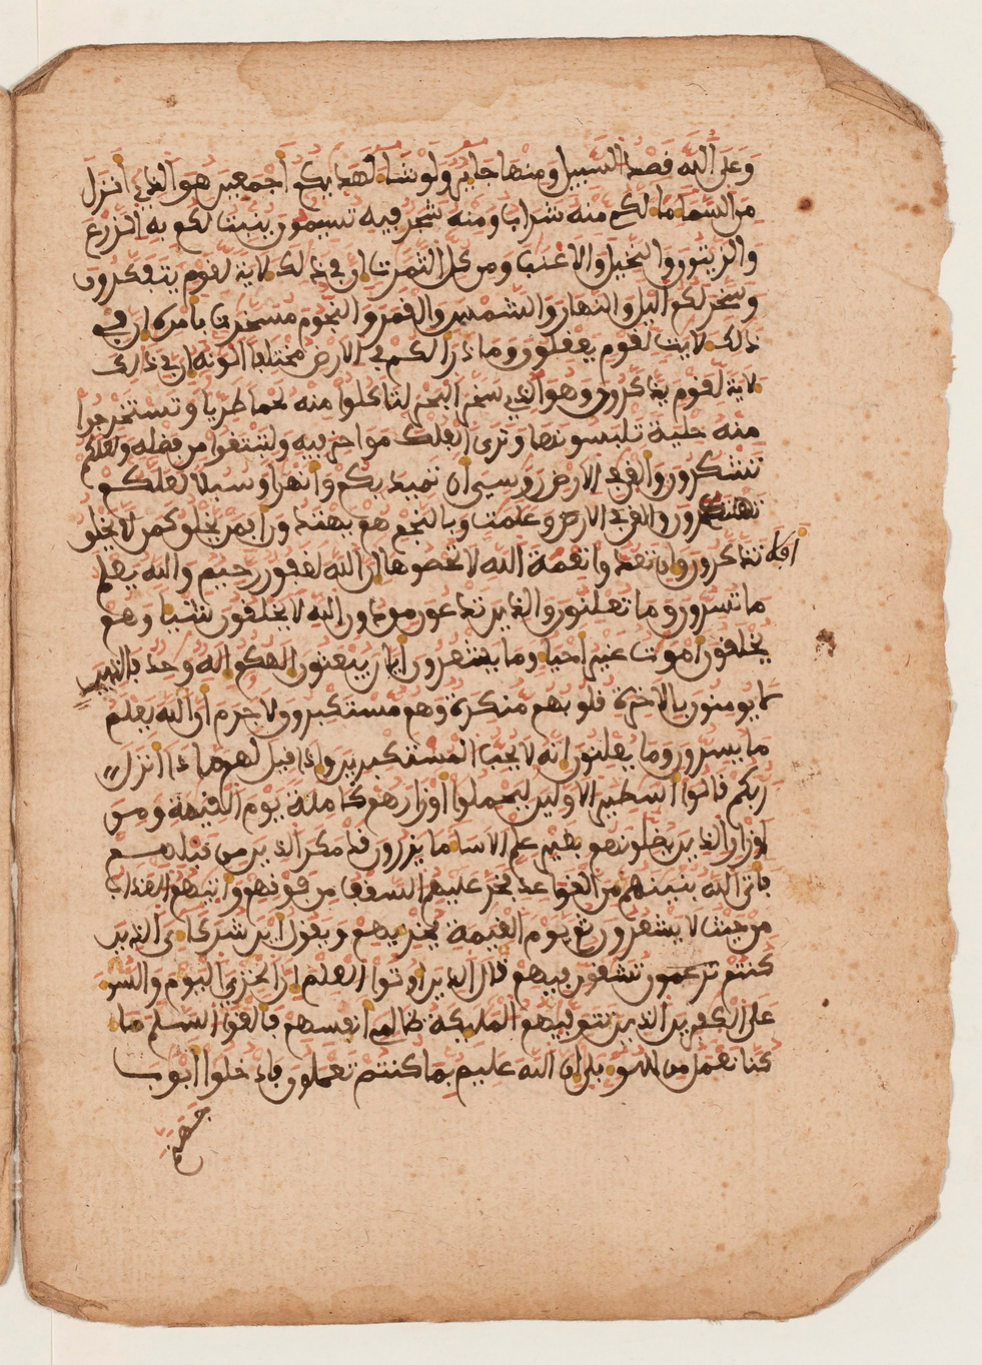 وَعَلَى اللَّه قصد السبيل ومنها جاير ولو شا لهديكم أجمعين هو الذي أنزل
من السما ما لكم منه شراب ومنه شجر فيه تسيمون ينبت لكم به الزرع
والزيتون والنخيل والاعنب ومن كل الثمرت ان في ذلك لاية لقوم يتفكرون
وسخر لكم اليل والنهار والشمس والقمر والنجوم مسخرت بامره ان في
ذلك لايت لقوم يعقلون وما ذرا لكم في الارض مختلفا الونه ان في ذالك
لاية لقوم يذكرون وهو الذي سخر البحر لتاكلوا منه لحما طريا وتستخرجوا
منه حلية تلبسونها وترى الفلك مواخر فيه ولتبتغوا من فضله ولعلكم
تشكرون والقى في الارض روسي ان تميد بكم وانهرا وسبلا لعلكم
وعلمت وبالنجم هم يهتدون افمن يخلق كمن لا يخلق
افلا تذكرون وان تعدوا نعمة الله لا تحصوها ان الله لغفور رحيم والله يعلم
ما تسرون وما تعلنون والذين تدعون من دون الله لا يخلقون شيا وهم
يخلقون اموت غير احيا وما يشعرون ايان يبعثون الهكم اله وحد فالذين
لا يومنون بالاخرة قلوبهم منكرة وهم مستكبرون لا جرم ان الله يعلم
ما يسرون وما يعلنون انه لا يحب المستكبرين واذا قيل لهم ما ذا انزل
ربكم قالوا اسطير الاولين ليحملوا اوزارهم كاملة يوم القيمة ومن
اوزار الذين يضلونهم بغير علم الا سا ما يزرون قد مكر الذين من قبلهم
فاتى الله بنينهم من القواعد فخر عليهم السقف من فوقهم واتيهم العذاب
من حيث لا يشعرون ثم يوم القيمة يخزيهم ويقول اين شركاءي الذين
كنتم تشقون فيهم قال الذين اوتوا العلم ان الخزي اليوم والسو
على الكفرين الذين تتوفيهم المليكة ظالمي انفسهم فالقوا السلم ما
كنا نعمل من سو بلى ان الله عليم بما كنتم تعملون فادخلوا ابوب
جهنم